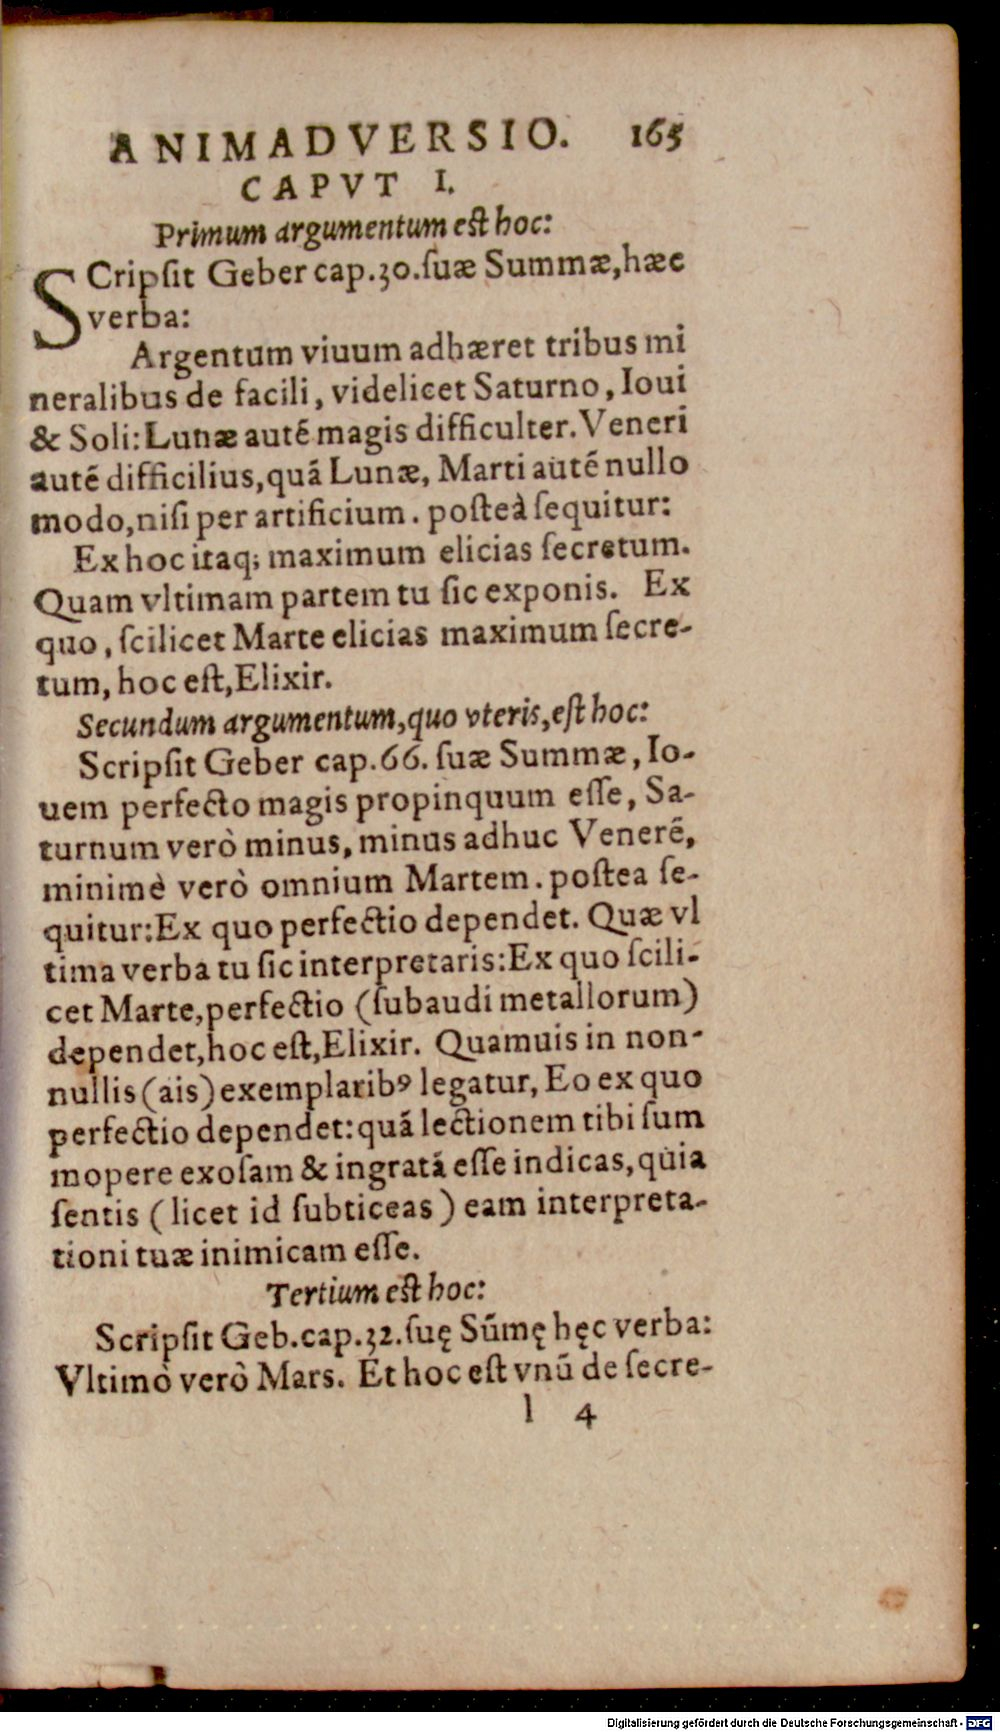 ANIMADVERSIO. 165
CAPVT I.
Primum argumentum est hoc:
SCripſit Geber cap.30.ſuæ Summæ,hæc
verba:
Argentum viuum adhæret tribus mi
neralibus de facili, videlicet Saturno, Ioui
& Soli: Lunæ autē magis difficulter. Veneri
autē difficilius,quā Lunæ, Marti autē nullo
modo,niſi per artificium. poſteà ſequitur:
Ex hoc itaq; maximum elicias ſecretum.
Quam vltimam partem tu ſic exponis. Ex
quo, ſcilicet Marte elicias maximum ſecre-
tum, hoc eſt,Elixir.
Secundum argumentum,quo vteris,eſt hoc:
Scripſit Geber cap.66. ſuæ Summæ, Io-
uem perfecto magis propinquum eſſe, Sa-
turnum verò minus, minus adhuc Venerē,
minimè verò omnium Martem. poſtea ſe-
quitur:Ex quo perfectio dependet. Quæ vl
tima verba tu ſic interpretaris:Ex quo ſcili-
cet Marte,perfectio (ſubaudi metallorum)
dependet,hoc eſt,Elixir. Quamuis in non-
nullis (ais) exemplarib⁹ legatur, Eo ex quo
perfectio dependet:quā lectionem tibi ſum
mopere exoſam & ingratā eſſe indicas,quia
ſentis (licet id ſubticeas) eam interpreta-
tioni tuæ inimicam eſſe.
Tertium eſt hoc:
Scripſit Geb.cap.32.ſuę Sūmę hęc verba:
Vltimò verò Mars. Et hoc eſt vnū de ſecre-
l 4
Digitalisierung gefördert durch die Deutsche Forschungsgemeinschaft - DFG